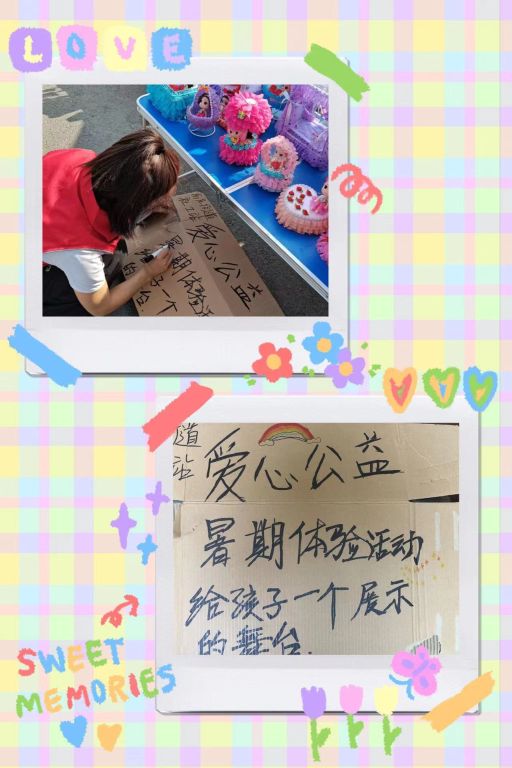 LOVE
爱心公益
暑期体验活
给孩子一个
的舞台.
道
站
爱心公益
暑期体验活动
给孩子一个展示
的舞台.
SWEET
MEMORIES